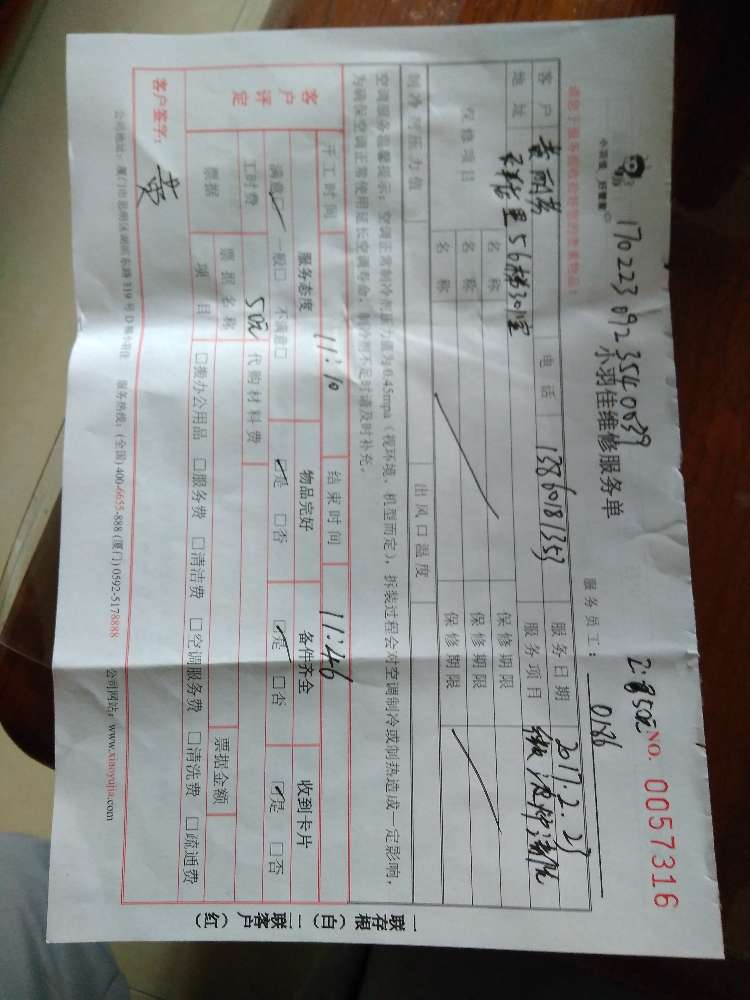 170223 092 354 0039
小羽佳维修服务单
小羽佳，好管家
NO. 0057316
请您于服务前收拾好您的贵重物品！
服务员工： 0186
客户 电话 13860181353 服务日期 2017.2.23
地址 56梯301室 服务项目
保修项目 名称 保修期限
名称 保修期限
名称 保修期限
制冷剂压力值 出风口温度
空调服务温馨提示：空调正常制冷剂压力值为0.45mpa（视环境、机型而定），拆装过程会对空调制冷或制热造成一定影响，
为确保空调正常使用延长空调寿命，制冷剂不足时请及时补充。
开工时间 11:10 结束时间 11:46
客户评定 服务态度 物品完好 备件齐全 收到卡片
满意☑ 一般□ 不满意□ ☑是 □否 ☑是 □否 ☑是 □否
工时费 50元 代购材料费
票据 票据名称 票据金额
项目 □搬办公用品 □服务费 □清洁费 □空调服务费 □清洗费 □疏通费
客户签字： 黄
公司地址：厦门市思明区湖滨东路319号D 服务热线：(全国) 400-6655-888 (厦门) 0592-5178888 公司网站：www.xiaoyujia.com
一联存根（白） 二联客户（红）